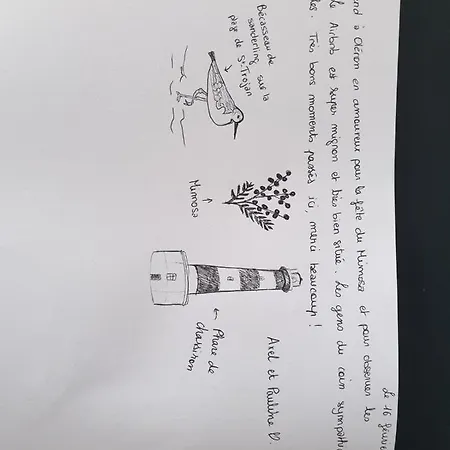 Le 16 févrie
nd à Oléron en amoureux pour la fête du Mimosa et pour observer les
Airbnb et super mignon et très bien situé. Les gens du coin sympathi
les. Très bons moments passés ici, merci beaucoup !
Bécasseau de
sanderling sur la
plage de St-Trojan
Mimosa
Phare de
chassiron
Axel et Pauline D.